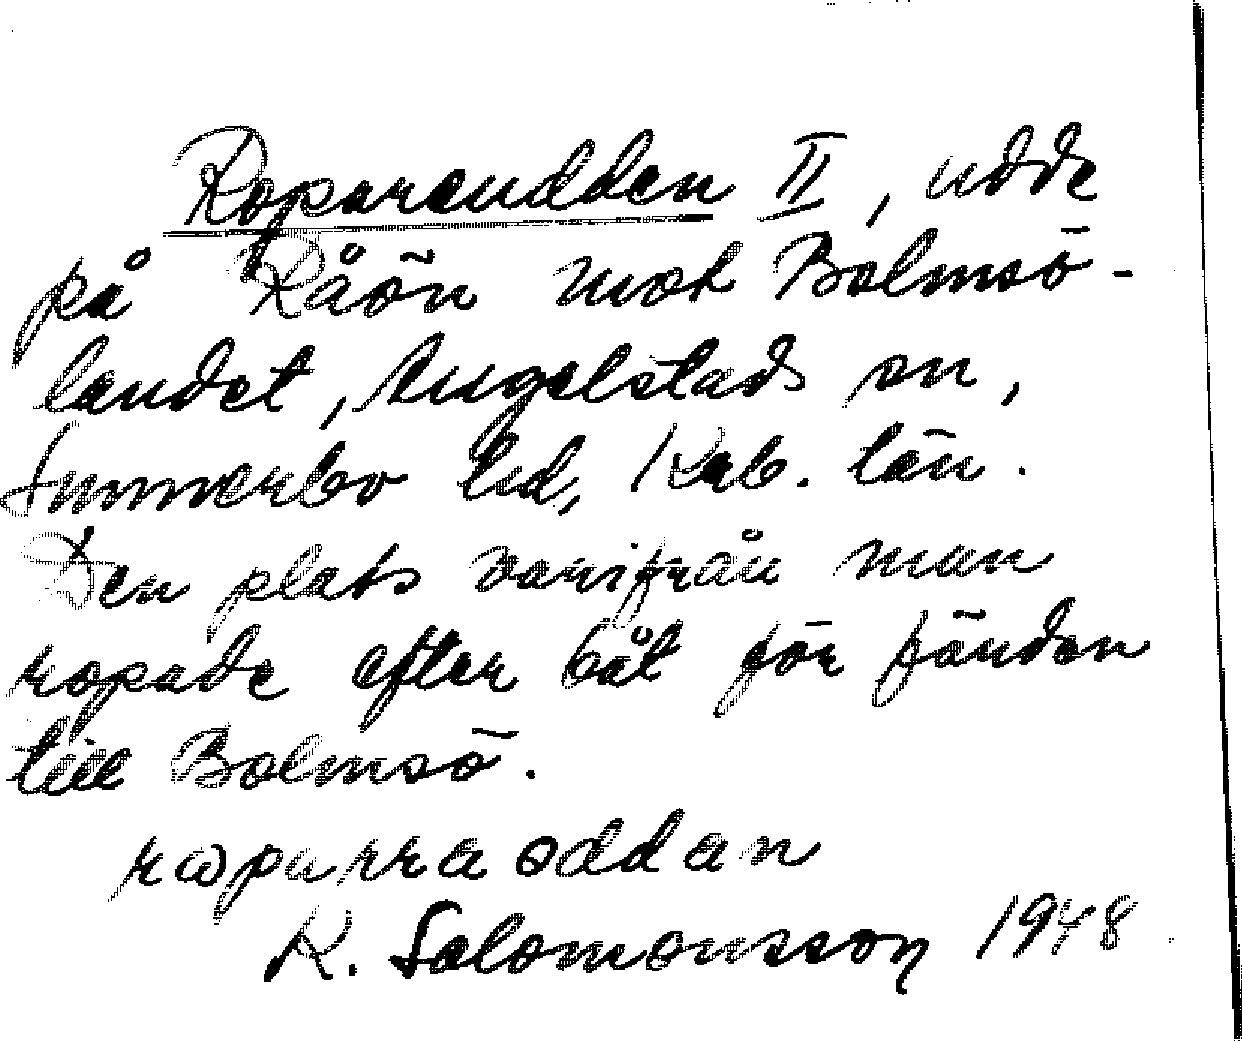 Roparaudden II, udde
på Råön mot Bolmsö-
landet, Angelstads sn,
Sunnerbo hd, Krb. län.
Den plats varifrån man
ropade efter båt för färden
till Bolmsö.
rωparra oddan
K. Salomonsson 1948